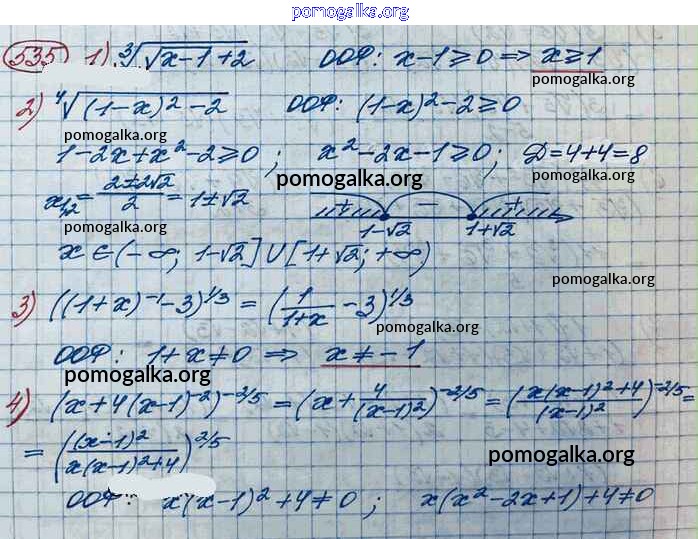 pomogalka.org
535 1) ∛(√(x-1) + 2) ООФ: x-1⩾0 ⇒ x⩾1
pomogalka.org
2) ⁴√((1-x)² - 2) ООФ: (1-x)² - 2⩾0
pomogalka.org
1-2x+x²-2⩾0 ; x²-2x-1⩾0; Д=4+4=8
pomogalka.org pomogalka.org
x₁,₂ = (2±2√2)/2 = 1±√2 + − +
pomogalka.org
1-√2 1+√2
x∈(-∞; 1-√2]∪[1+√2; +∞)
pomogalka.org
3) ((1+x)⁻¹-3)^1/3 = (1/(1+x) - 3)^1/3
pomogalka.org
ООФ: 1+x≠0 ⇒ x≠-1
pomogalka.org
4) (x+4(x-1)⁻²)^-2/5 = (x + 4/(x-1)²)^-2/5 = ((x(x-1)²+4)/(x-1)²)^-2/5 =
= ((x-1)²/(x(x-1)²+4))^2/5
pomogalka.org
ООФ: x(x-1)²+4≠0 ; x(x²-2x+1)+4≠0